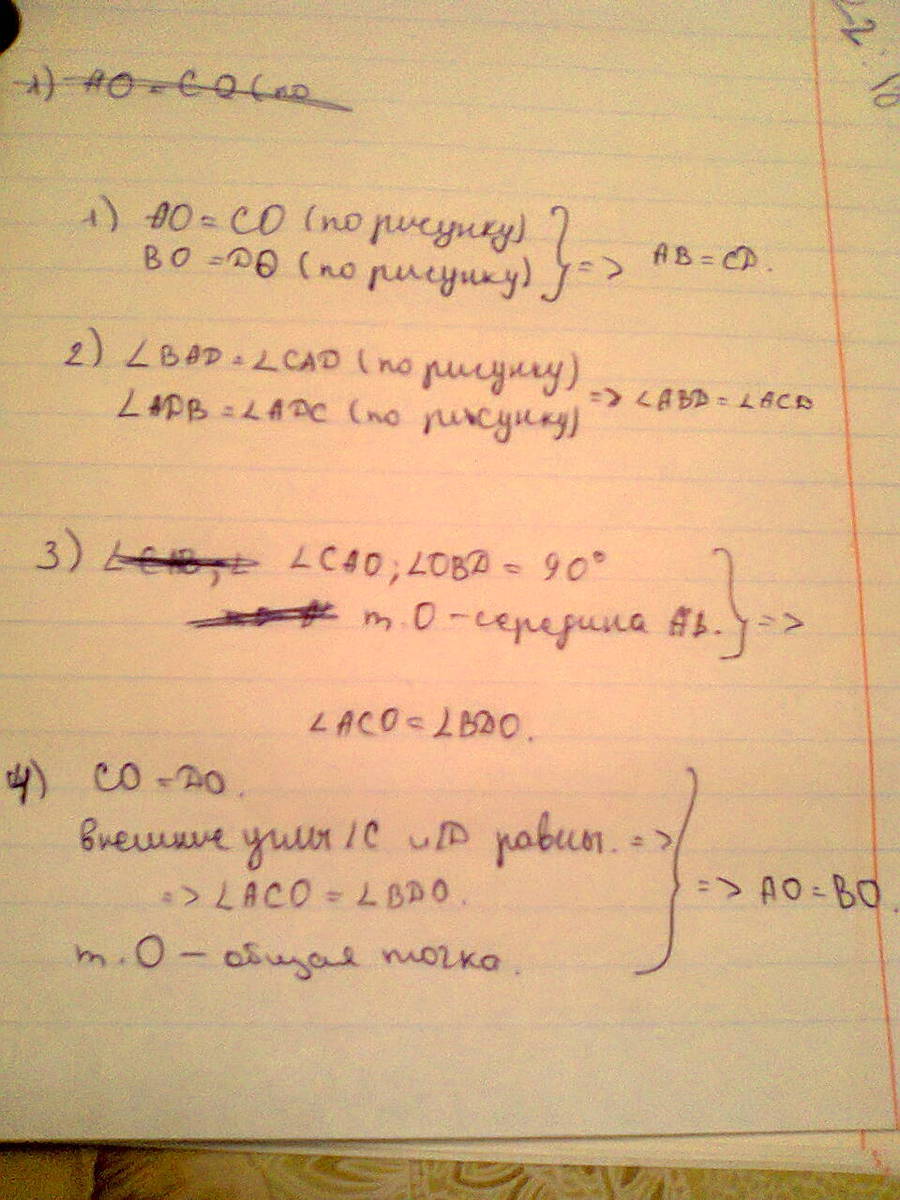 1) AO = CO (по
1) AO = CO (по рисунку)
BO = DO (по рисунку) } => AB = CD.
2) ∠BAD = ∠CAD (по рисунку)
∠ADB = ∠ADC (по рисунку) => ∠ABD = ∠ACD
3) ∠CAO; ∠OBD = 90°
т. O – середина AB. } =>
∠ACO = ∠BDO.
4) CO = DO.
внешние углы ∠C и ∠D равны. =>
=> ∠ACO = ∠BDO. } => AO = BO.
т. O – общая точка.